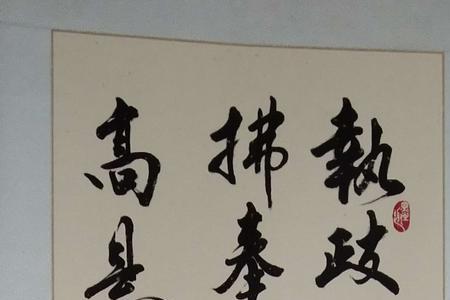 執政
拂奉
高